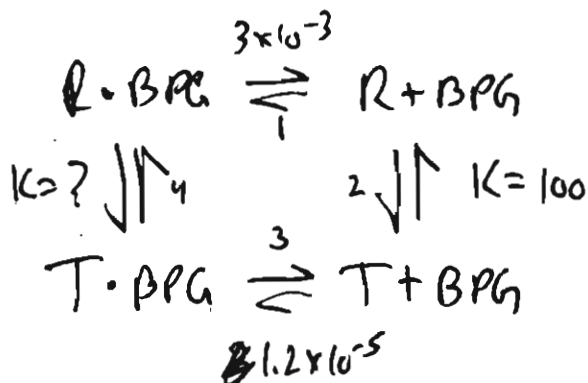 3×10⁻³
R·BPG ⇌ R+BPG
1
K=? 4 2 K=100
3
T·BPG ⇌ T+BPG
1.2×10⁻⁵